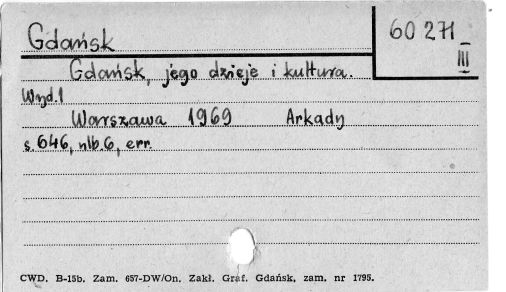 Gdańsk
60 271
III
Gdańsk, jego dzieje i kultura.
Wyd.1
Warszawa 1969 Arkady
s.646, nlb.6, err.
CWD. B-15b. Zam. 657-DW/On. Zakł. Graf. Gdańsk, zam. nr 1795.